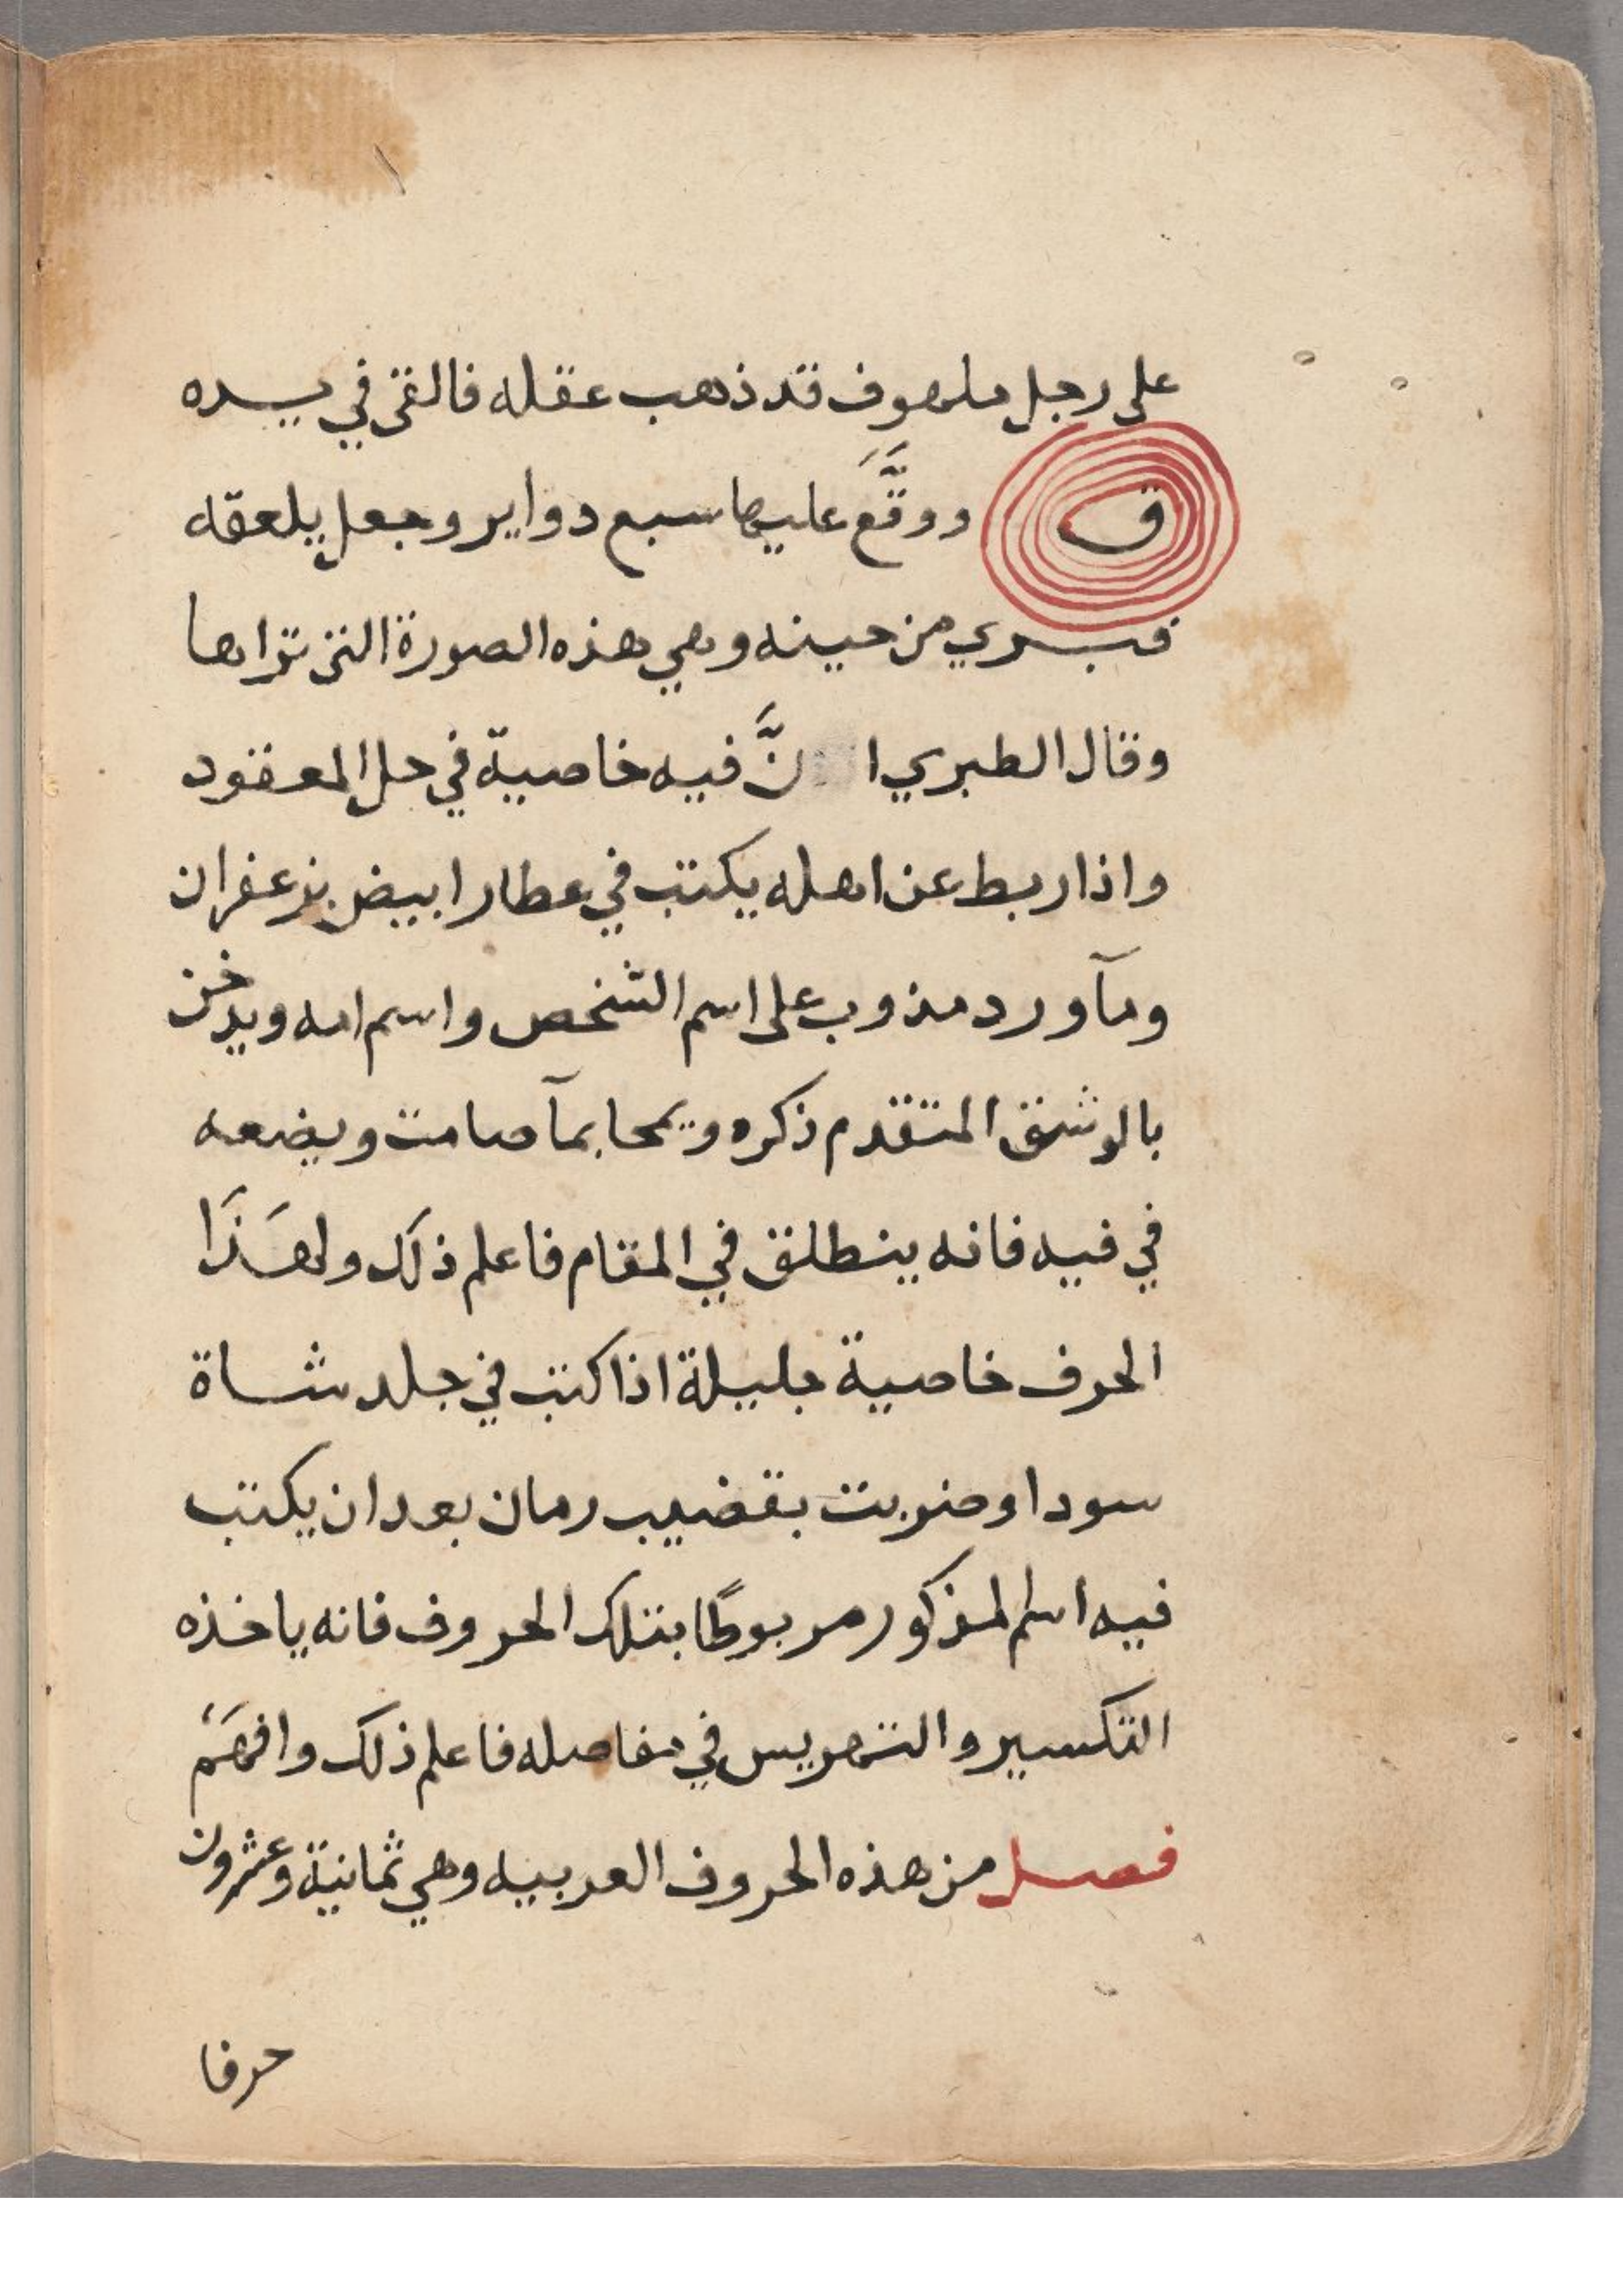 على رجل ملهوف قد ذهب عقله فالقى في يده
ق ووقَّعَ عليها سبع دواير وجعل يلعقه
فبري من حينه وهي هذه الصورة التى تراها
وقال الطبري ا نَّ فيه خاصية في حل المعقود
واذا ربط عن اهله يكتب في عطار ابيض بزعفران
ومآ ورد مذوب على اسم الشخص واسم امه ويدخن
بالوشق المتقدم ذكره ويمحا بمآ صامت ويضعه
في فيه فانه ينطلق في المقام فاعلم ذلك ولهَذَا
الحرف خاصية جليلة اذا كتب في جلد شاة
سودا وضربت بقضيب رمان بعد ان يكتب
فيه اسم المذكور مربوطًا بتلك الحروف فانه ياخذه
التكسير والتهريس في مفاصله فاعلم ذلك وافهَمْ
فصل من هذه الحروف العربيه وهي ثمانية وعشرون
حرفا